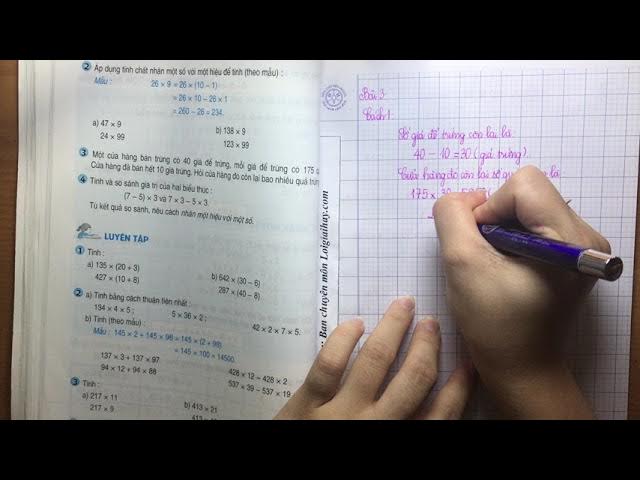 2 Áp dụng tính chất nhân một số với một hiệu để tính (theo mẫu) :
Mẫu : 26 × 9 = 26 × (10 – 1)
= 26 × 10 – 26 × 1
= 260 – 26 = 234.
a) 47 × 9 b) 138 × 9
24 × 99 123 × 99
3 Một cửa hàng bán trứng có 40 giá để trứng, mỗi giá để trứng có 175 q
Cửa hàng đã bán hết 10 giá trứng. Hỏi cửa hàng đó còn lại bao nhiêu quả trứn
4 Tính và so sánh giá trị của hai biểu thức :
(7 – 5) × 3 và 7 × 3 – 5 × 3.
Từ kết quả so sánh, nêu cách nhân một hiệu với một số.
LUYỆN TẬP
1 Tính :
a) 135 × (20 + 3) b) 642 × (30 – 6)
427 × (10 + 8) 287 × (40 – 8)
2 a) Tính bằng cách thuận tiện nhất :
134 × 4 × 5 ; 5 × 36 × 2 ; 42 × 2 × 7 × 5.
b) Tính (theo mẫu) :
Mẫu : 145 × 2 + 145 × 98 = 145 × (2 + 98)
= 145 × 100 = 14500.
137 × 3 + 137 × 97 428 × 12 – 428 × 2
94 × 12 + 94 × 88 537 × 39 – 537 × 19
3 Tính :
a) 217 × 11 b) 413 × 21
217 × 9
: Ban chuyên môn Loigiaihay.com
Bài 3
Cách 1:
Số giá để trứng còn lại là
40 – 10 = 30 (giá trứng)
Cửa hàng đó còn lại số qu là
175 × 30